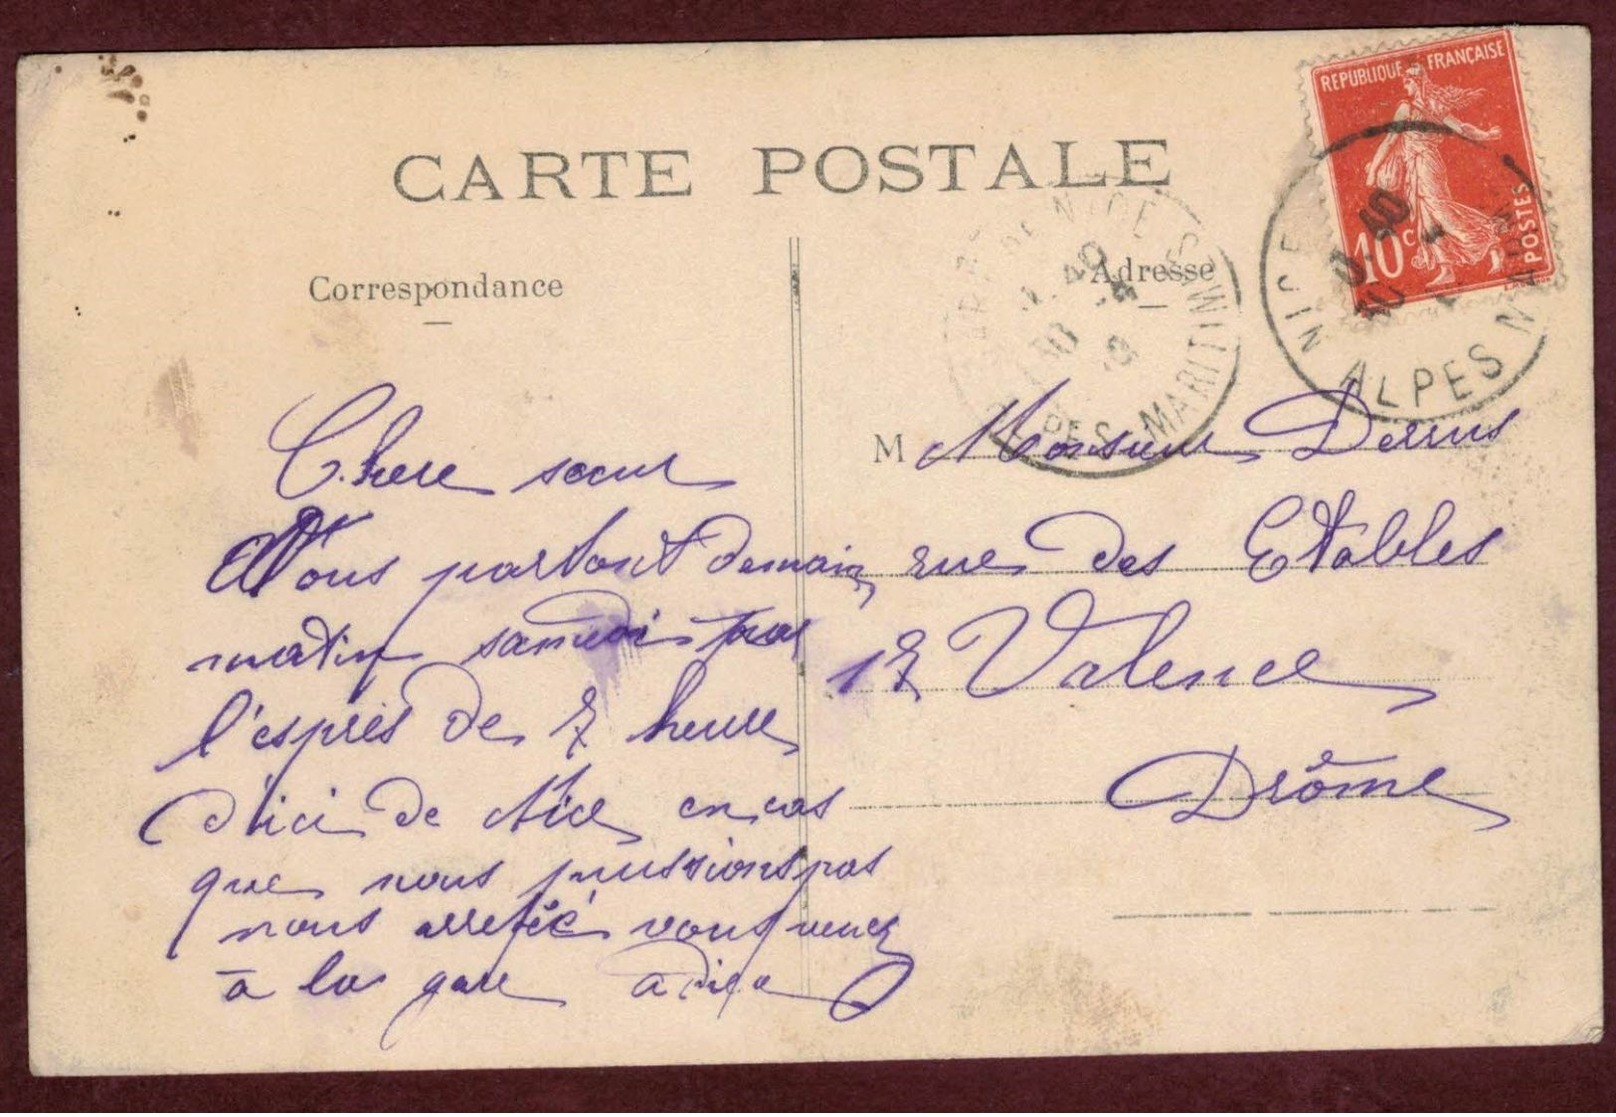 CARTE POSTALE
REPUBLIQUE FRANÇAISE
10c POSTES
NICE ALPES MARIT
NICE ALPES-MARITIMES
Correspondance
Adresse
Chere soeur
Nous partont demain
matin samedi par
l'esprès de 7 heure
d'ici de Nice en cas
que nous pussions pas
nous arreté vous venez
à la gare
M Monsieur Derrus
rue des Etables
17 Valence
Drôme